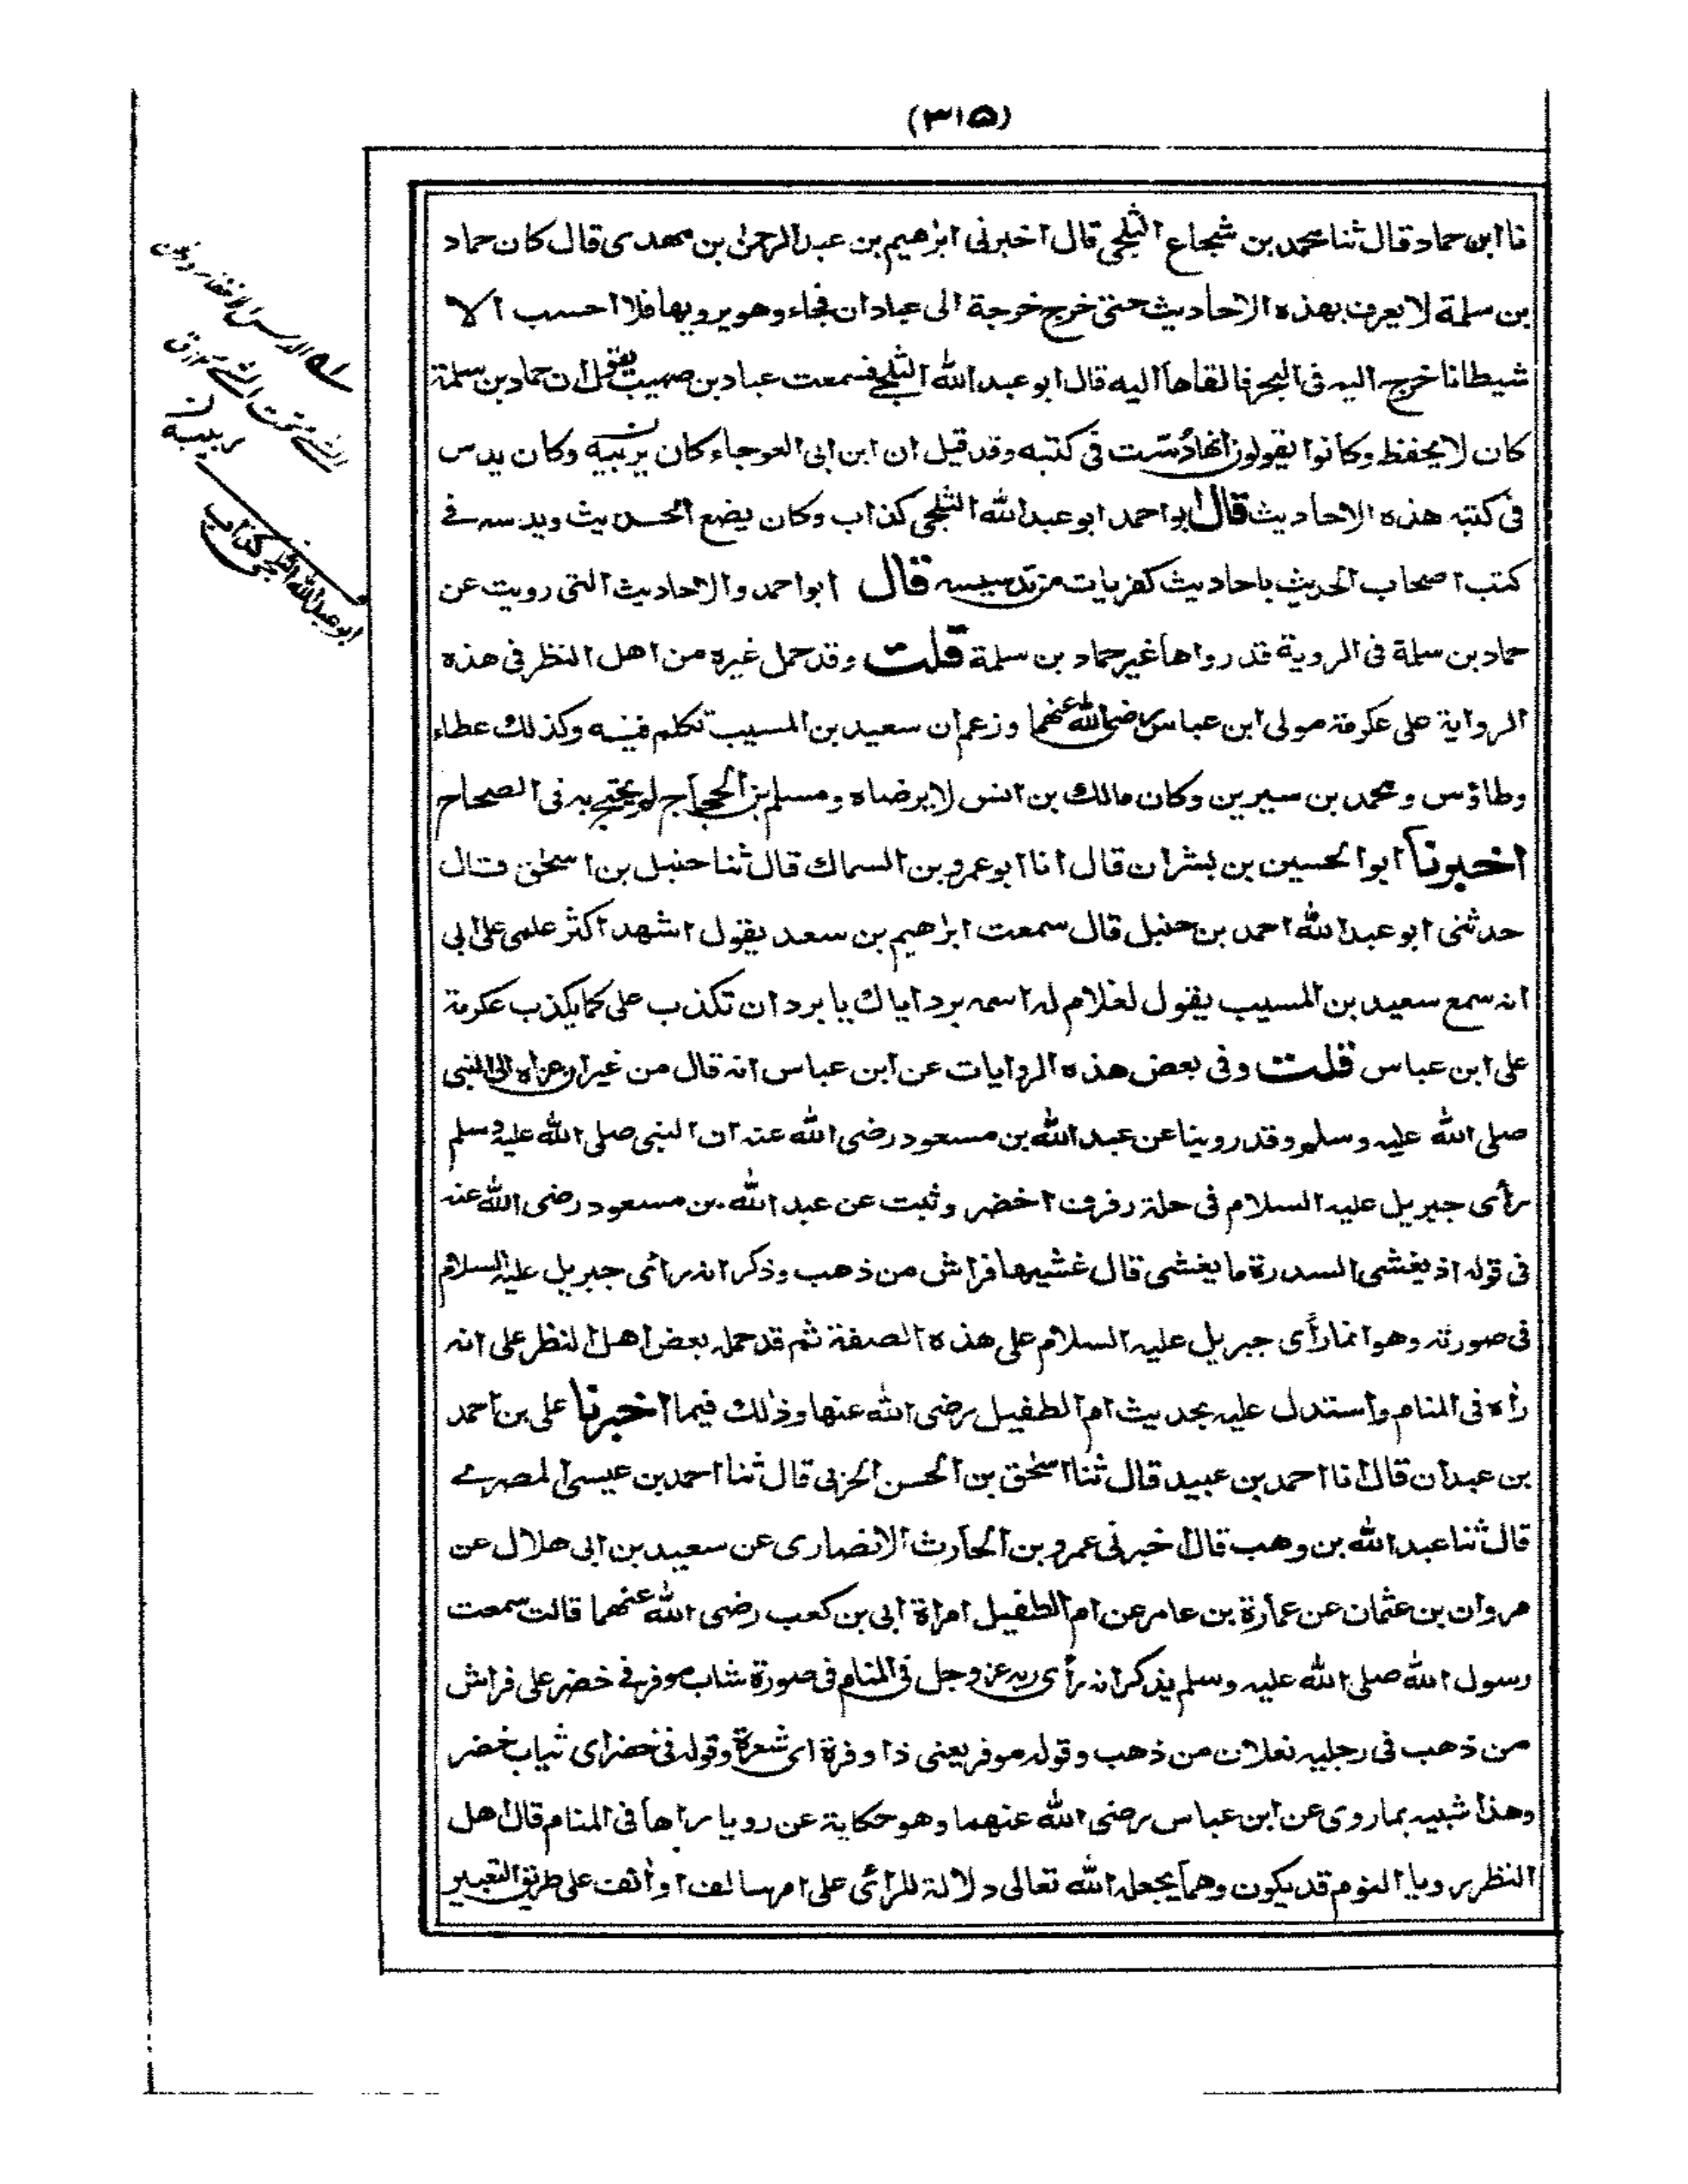 (٣١٥)
نا ابن حماد قال ثنا محمد بن شجاع الثلجى قال اخبرنى ابرهيم بن عبد الرحمن بن مهدى قال كان حماد
بن سلمة لا يعرف بهذه الاحاديث حتى خرج خرجة الى عبادان فجاء وهو يرويها فلا احسب الا
شيطانا خرج اليه فى البحر فالقاها اليه قال ابو عبد الله الثلجى فسمعت عباد بن صهيب يقول ان حماد بن سلمة
كان لا يحفظ وكانوا يقولون انها دُسّت فى كتبه وقد قيل ان ابن ابى العوجاء كان ربيبه وكان يدس
فى كتبه هذه الاحاديث قال ابو احمد ابو عبد الله الثلجى كذاب وكان يضع الحديث ويدسه فى
كتب اصحاب الحديث باحاديث كفريات من تدسيسه قال ابو احمد والاحاديث التى رويت عن
حماد بن سلمة فى الروية قد رواها غير حماد بن سلمة قلت وقد حمل غيره من اهل النظر فى هذه
الرواية على عكرمة مولى ابن عباس رضى الله عنهما وزعم ان سعيد بن المسيب تكلم فيه وكذلك عطاء
وطاؤس ومحمد بن سيرين وكان مالك بن انس لا يرضاه ومسلم بن الحجاج لم يحتج به فى الصحاح
اخبرنا ابو الحسين بن بشران قال انا ابو عمرو بن السماك قال ثنا حنبل بن اسحٰق قال
حدثنى ابو عبد الله احمد بن حنبل قال سمعت ابرٰهيم بن سعد يقول اشهد اكثر علمى على ابى
انه سمع سعيد بن المسيب يقول لغلام له اسمه برد اياك يا برد ان تكذب على كما يكذب عكرمة
على ابن عباس قلت وفى بعض هذه الروايات عن ابن عباس انه قال من غير ان عزاه الى النبى
صلى الله عليه وسلم وقد روينا عن عبد الله بن مسعود رضى الله عنه ان النبى صلى الله عليه وسلم
رأى جبريل عليه السلام فى حلة رفرف اخضر وثبت عن عبد الله بن مسعود رضى الله عنه
فى قوله اذ يغشى السدرة ما يغشى قال غشيها فراش من ذهب وذكر انه رأى جبريل عليه السلام
فى صورته وهو انما رأى جبريل عليه السلام على هذه الصفة ثم قد حمله بعض اهل النظر على انه
رأه فى المنام واستدل عليه بحديث ام الطفيل رضى الله عنها وذلك فيما اخبرنا على بن احمد
بن عبدان قال انا احمد بن عبيد قال ثنا اسحٰق بن الحسن الحربى قال ثنا احمد بن عيسى المصرى
قال ثنا عبد الله بن وهب قال اخبرنى عمرو بن الحارث الانصارى عن سعيد بن ابى هلال عن
مروان بن عثمان عن عمارة بن عامر عن ام الطفيل امراة ابى بن كعب رضى الله عنهما قالت سمعت
رسول الله صلى الله عليه وسلم يذكر انه رأى ربه عز وجل فى المنام فى صورة شاب موفر فى خضر على فراش
من ذهب فى رجليه نعلان من ذهب وقوله موفر يعنى ذا وفرة اى شعرة وقوله فى خضر اى ثياب خضر
وهذا شبيه بما روى عن ابن عباس رضى الله عنهما وهو حكاية عن رويا راها فى المنام قال اهل
النظر رويا النوم قد يكون وهما يجعله الله تعالى دلالة للرائى على امر سالف او أنف على طريق التعبير
ربيبه
ابو عبد الله الثلجى كذاب